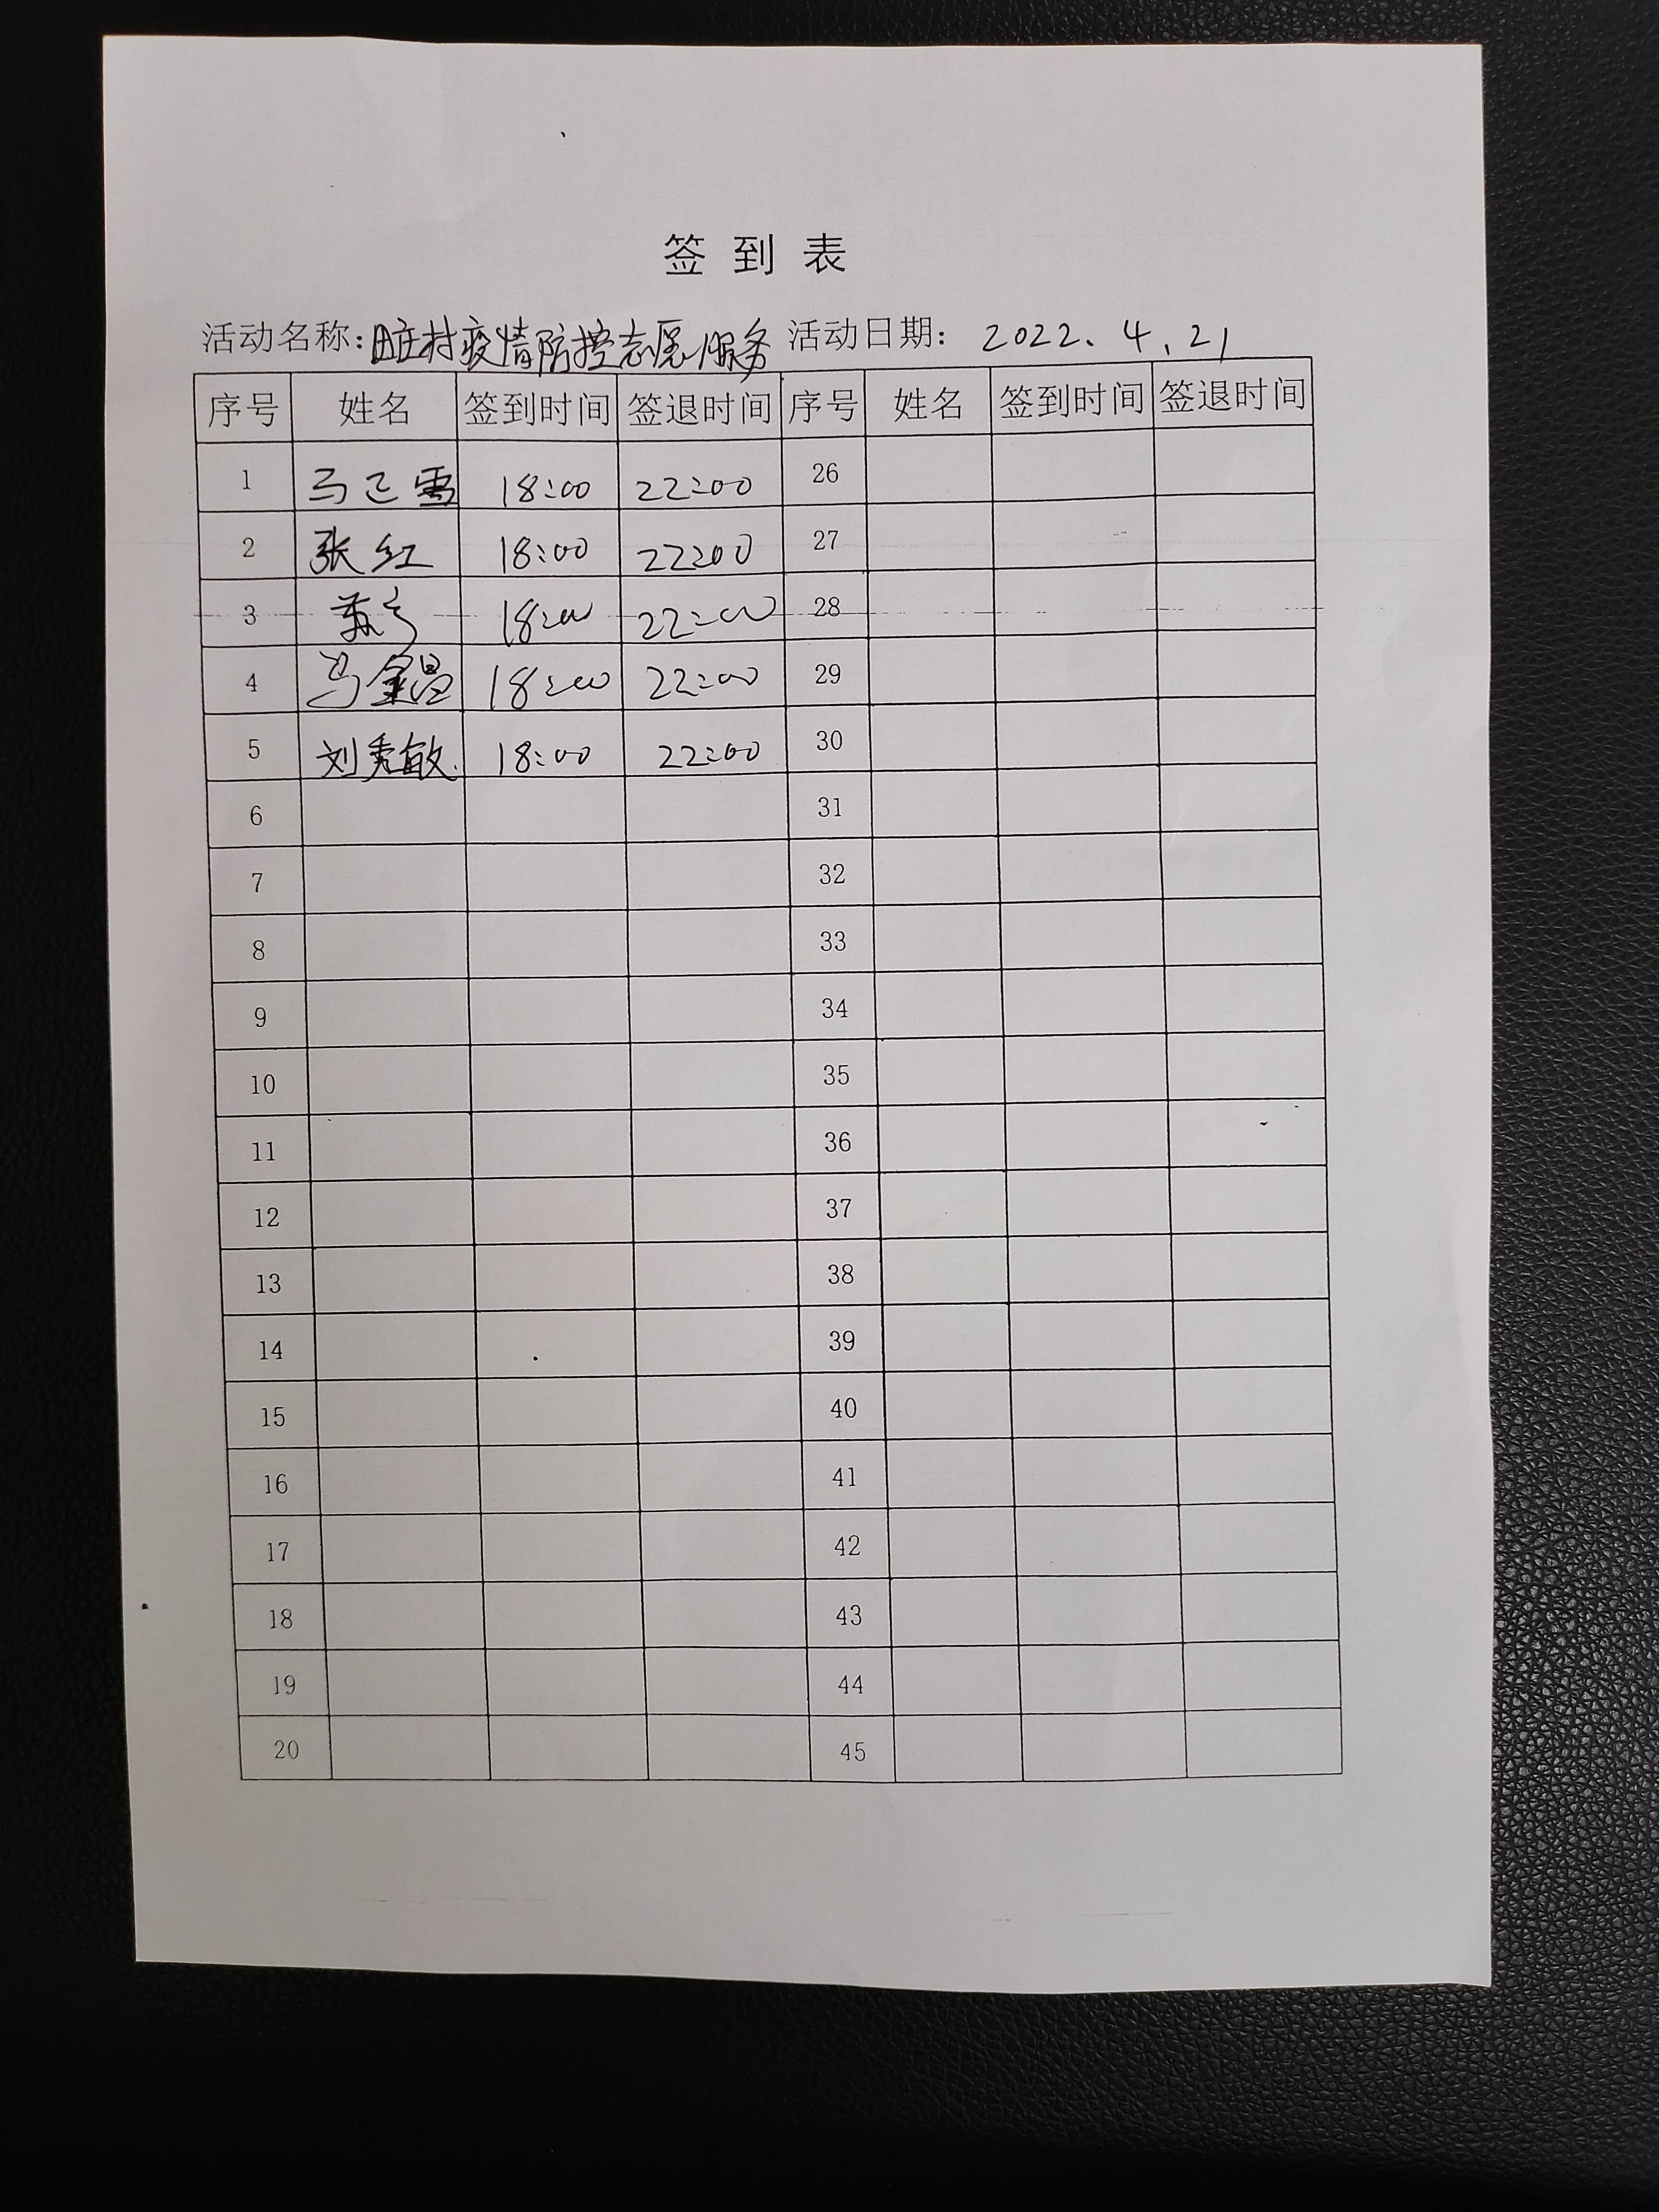 签到表
活动名称：田庄村疫情防控志愿服务 活动日期：2022.4.21
序号 姓名 签到时间 签退时间 序号 姓名 签到时间 签退时间
1 马 雪 18:00 22:00 26
2 张红 18:00 22:00 27
3 18:00 22:00 28
4 马金昌 18:00 22:00 29
5 刘秀敏 18:00 22:00 30
6 31
7 32
8 33
9 34
10 35
11 36
12 37
13 38
14 39
15 40
16 41
17 42
18 43
19 44
20 45